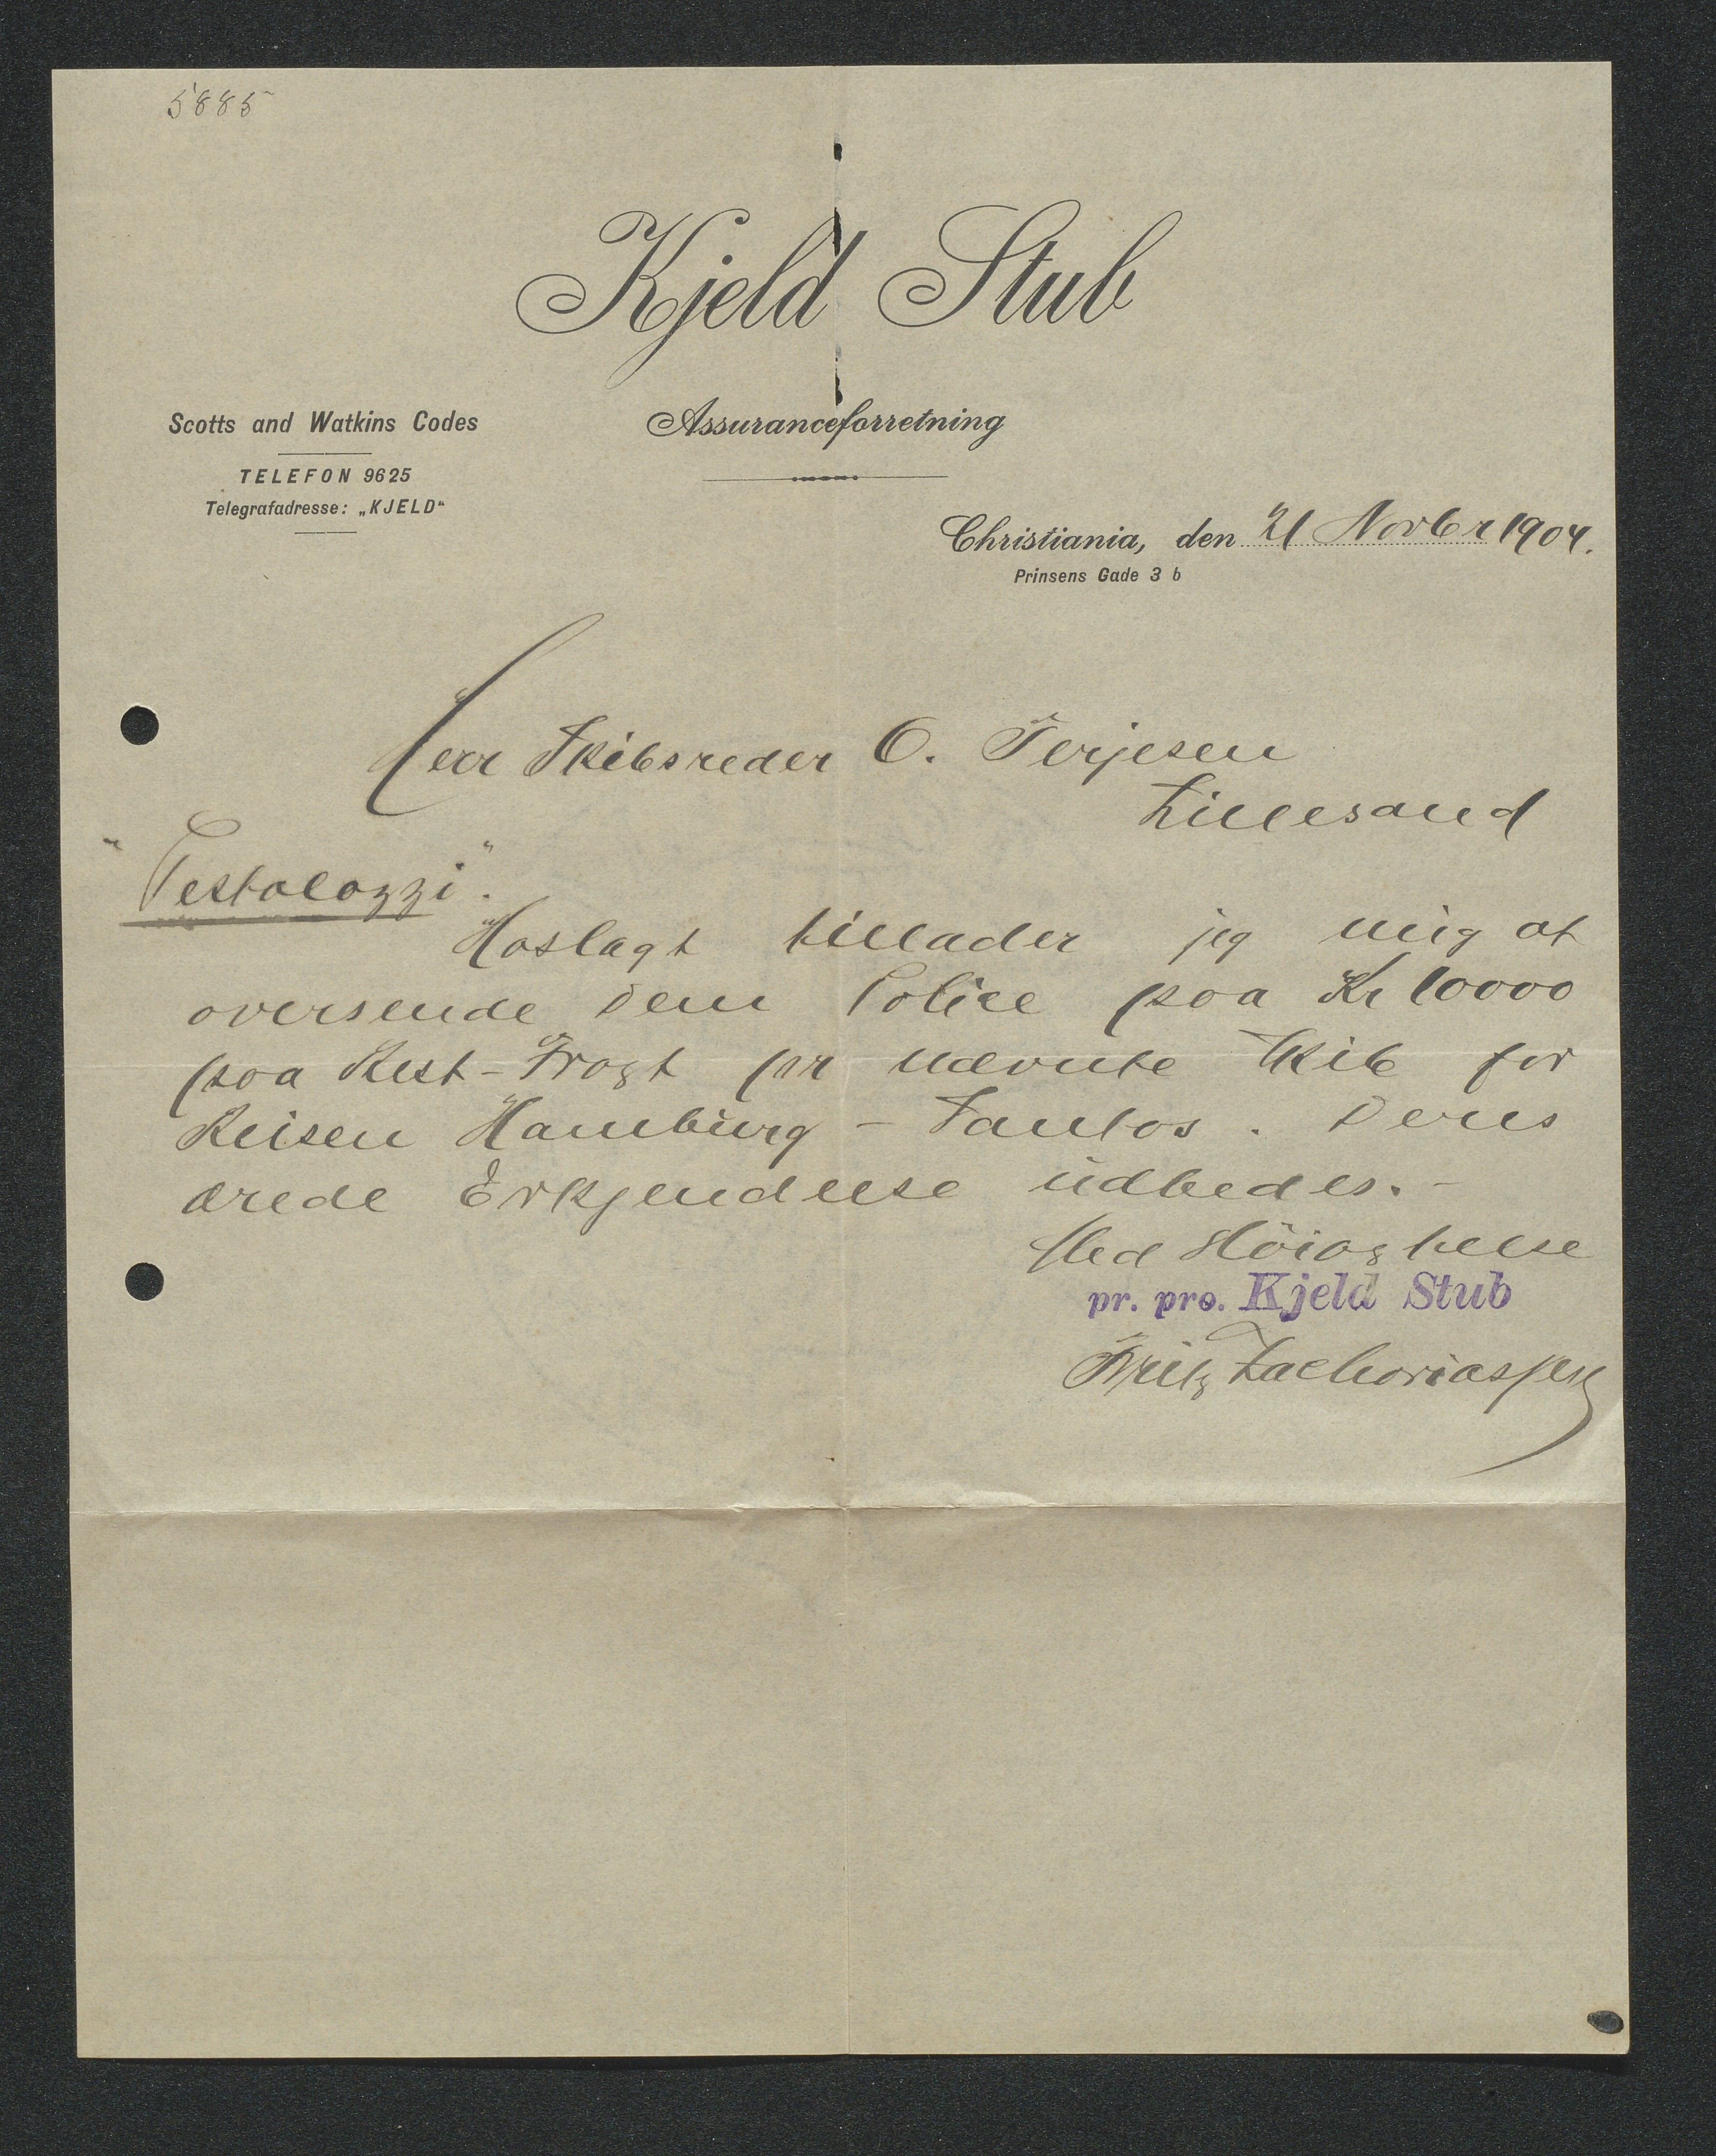 5885
Kjeld Stub
Scotts and Watkins Codes
Assuranceforretning
TELEFON 9625
Telegrafadresse: „KJELD“
Christiania, den 21 Novbr 1904.
Prinsens Gade 3 b
Herr Skibsreder O. Terjesen
Lillesand
"Pestalozzi".
Hoslagt tillader jeg mig at
oversende Dem Police paa Kr 10000
paa Rest-Fragt pr nævnte Skib for
Reisen Hamburg - Santos. Deres
ærede Erkjendelse udbedes.-
Med Höiagtelse
pr. pro. Kjeld Stub
Fritz Zachariassen